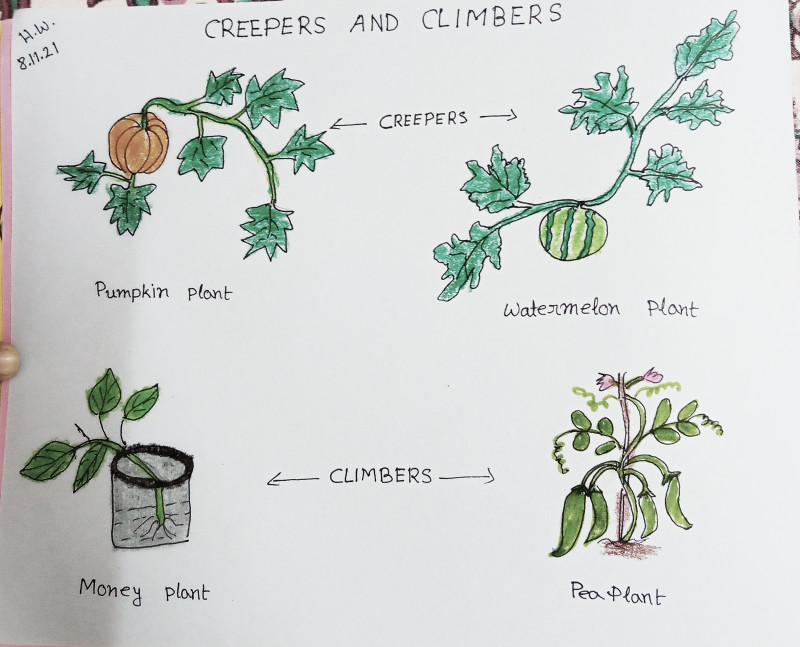 H.W.
8.11.21
CREEPERS AND CLIMBERS
CREEPERS
Pumpkin plant
Watermelon Plant
CLIMBERS
Money plant
Pea Plant